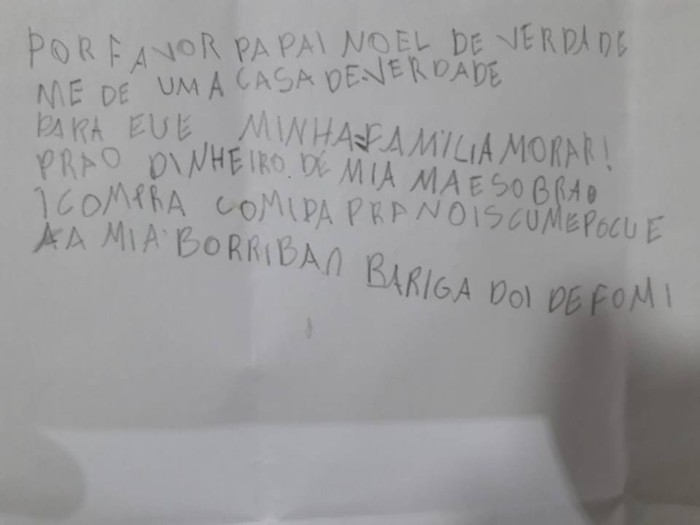 POR FAVOR PAPAI NOEL DE VERDADE
ME DE UMA CASA DE VERDADE
PARA EU E MINHA FAMILIA MORAR!
PRA O DINHEIRO DE MIA MAE SOBRAO
I COMPRA COMIDA PRA NOIS CUME POCUE
A A MIA BORRIBAN BARIGA DOI DE FOMI